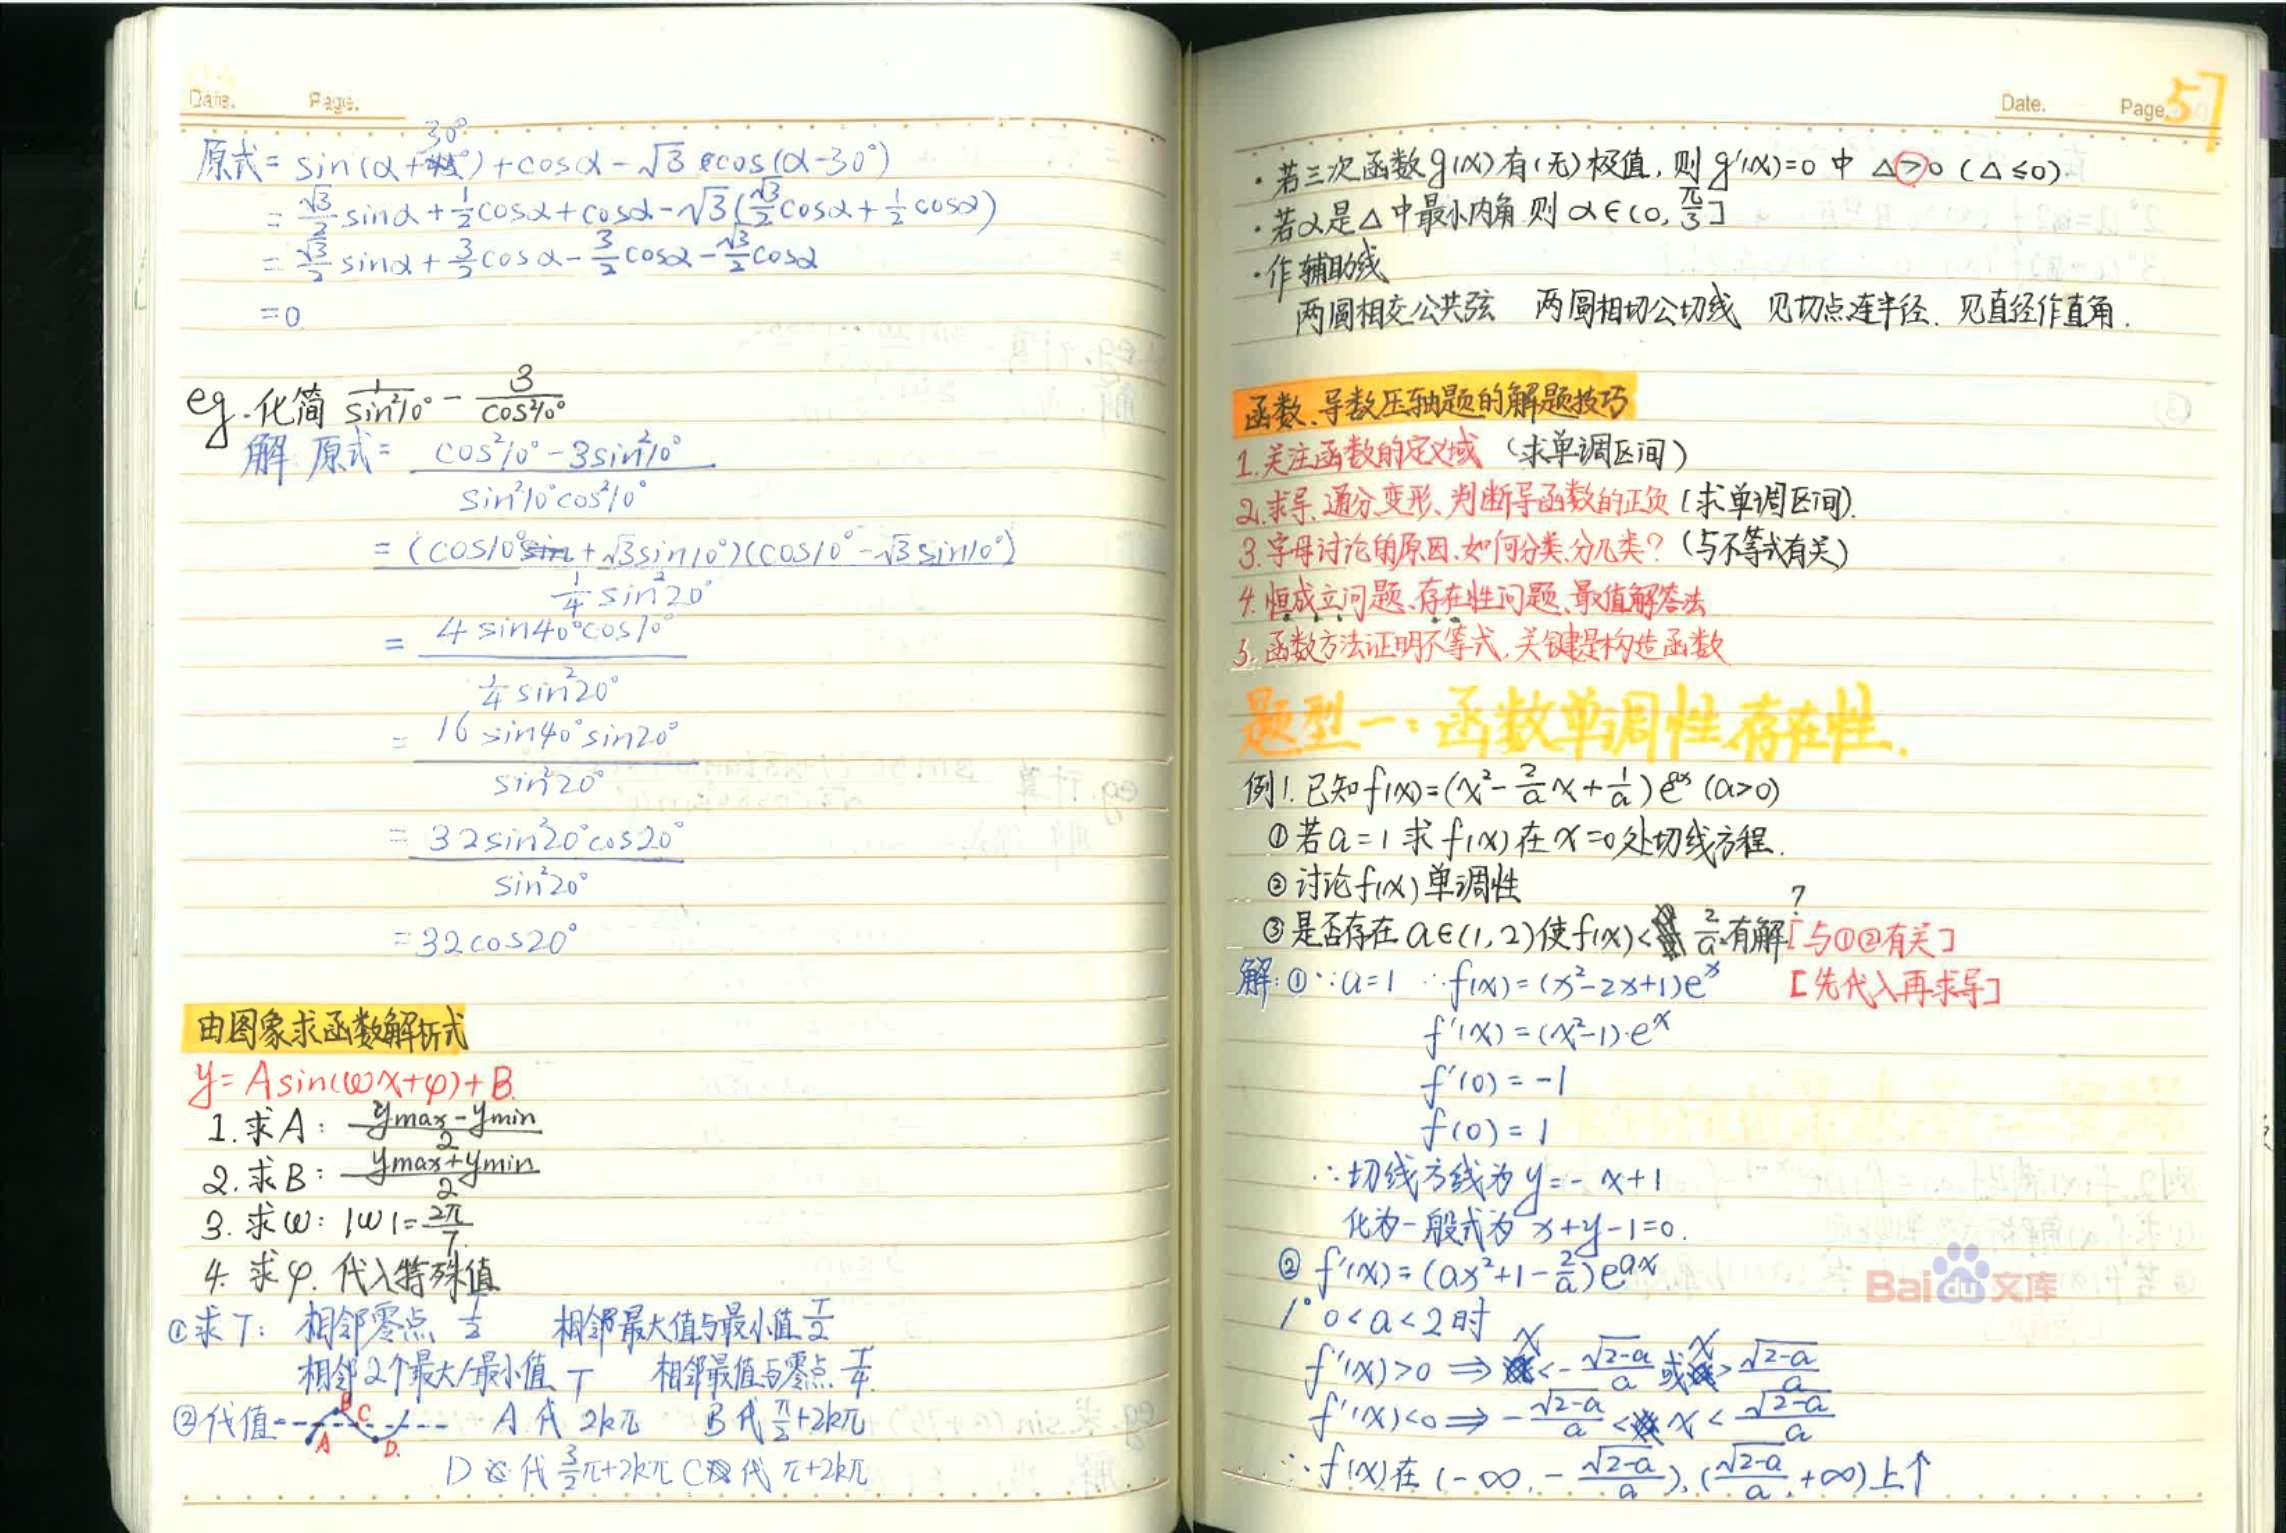 Date. Page.
30°
原式= sin(α+ )+cosα-√3 cos(α-30°)
= √3/2 sinα+1/2cosα+cosα-√3(√3/2cosα+1/2cosα)
= √3/2 sinα+3/2cosα-3/2cosα-√3/2cosα
=0
eg.化简 1/sin²10° - 3/cos²10°
解 原式= (cos²10°-3sin²10°)/(sin²10°cos²10°)
= (cos10°+√3sin10°)(cos10°-√3sin10°)/(1/4 sin²20°)
= 4sin40°cos70°/(1/4 sin²20°)
= 16sin40°sin20°/sin²20°
= 32sin²20°cos20°/sin²20°
=32cos20°
由图象求函数解析式
y=Asin(ωx+φ)+B.
1.求A: (ymax-ymin)/2
2.求B: (ymax+ymin)/2
3.求ω: |ω|=2π/T
4.求φ.代入特殊值
①求T: 相邻零点 T/2 相邻最大值与最小值 T/2
相邻2个最大/最小值 T 相邻最值与零点 T/4
②代值 A B C D. A代 2kπ B代 π/2+2kπ
D 代 3/2π+2kπ C 代 π+2kπ
Date. Page. 57
·若三次函数g(x)有(无)极值,则g'(x)=0中 Δ>0 (Δ≤0)
·若α是△中最小内角.则α∈(0,π/3]
·作辅助线
两圆相交公共弦 两圆相切公切线 见切点连半径. 见直径作直角.
函数、导数压轴题的解题技巧
1.关注函数的定义域 (求单调区间)
2.求导、通分、变形、判断导函数的正负 (求单调区间).
3.字母讨论的原因.如何分类.分几类? (与不等式有关)
4.恒成立问题、存在性问题、最值解答法
5.函数方法证明不等式,关键是构造函数
题型一:函数单调性.存在性.
例1.已知f(x)=(x²-2/a x+1/a)e^ax (a>0)
①若a=1求f(x)在x=0处切线方程.
②讨论f(x)单调性
③是否存在a∈(1,2)使f(x)< 2/a有解? [与①②有关]
解:①∵a=1 ∴f(x)=(x²-2x+1)e^x [先代入再求导]
f'(x)=(x²-1)·e^x
f'(0)=-1
f(0)=1
∴切线方线为y=-x+1
化为一般式为 x+y-1=0.
②f'(x)=(ax²+1-2/a)e^ax
1°0<a<2时
f'(x)>0 ⇒ x<-√(2-a)/a 或x>√(2-a)/a
f'(x)<0 ⇒ -√(2-a)/a<x<√(2-a)/a
∴f(x)在(-∞,-√(2-a)/a),(√(2-a)/a,+∞)上↑
Bai du 文库